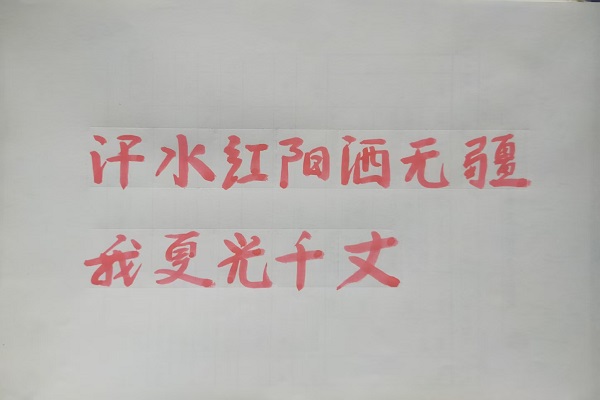 汗水红阳洒无疆
我夏光千丈